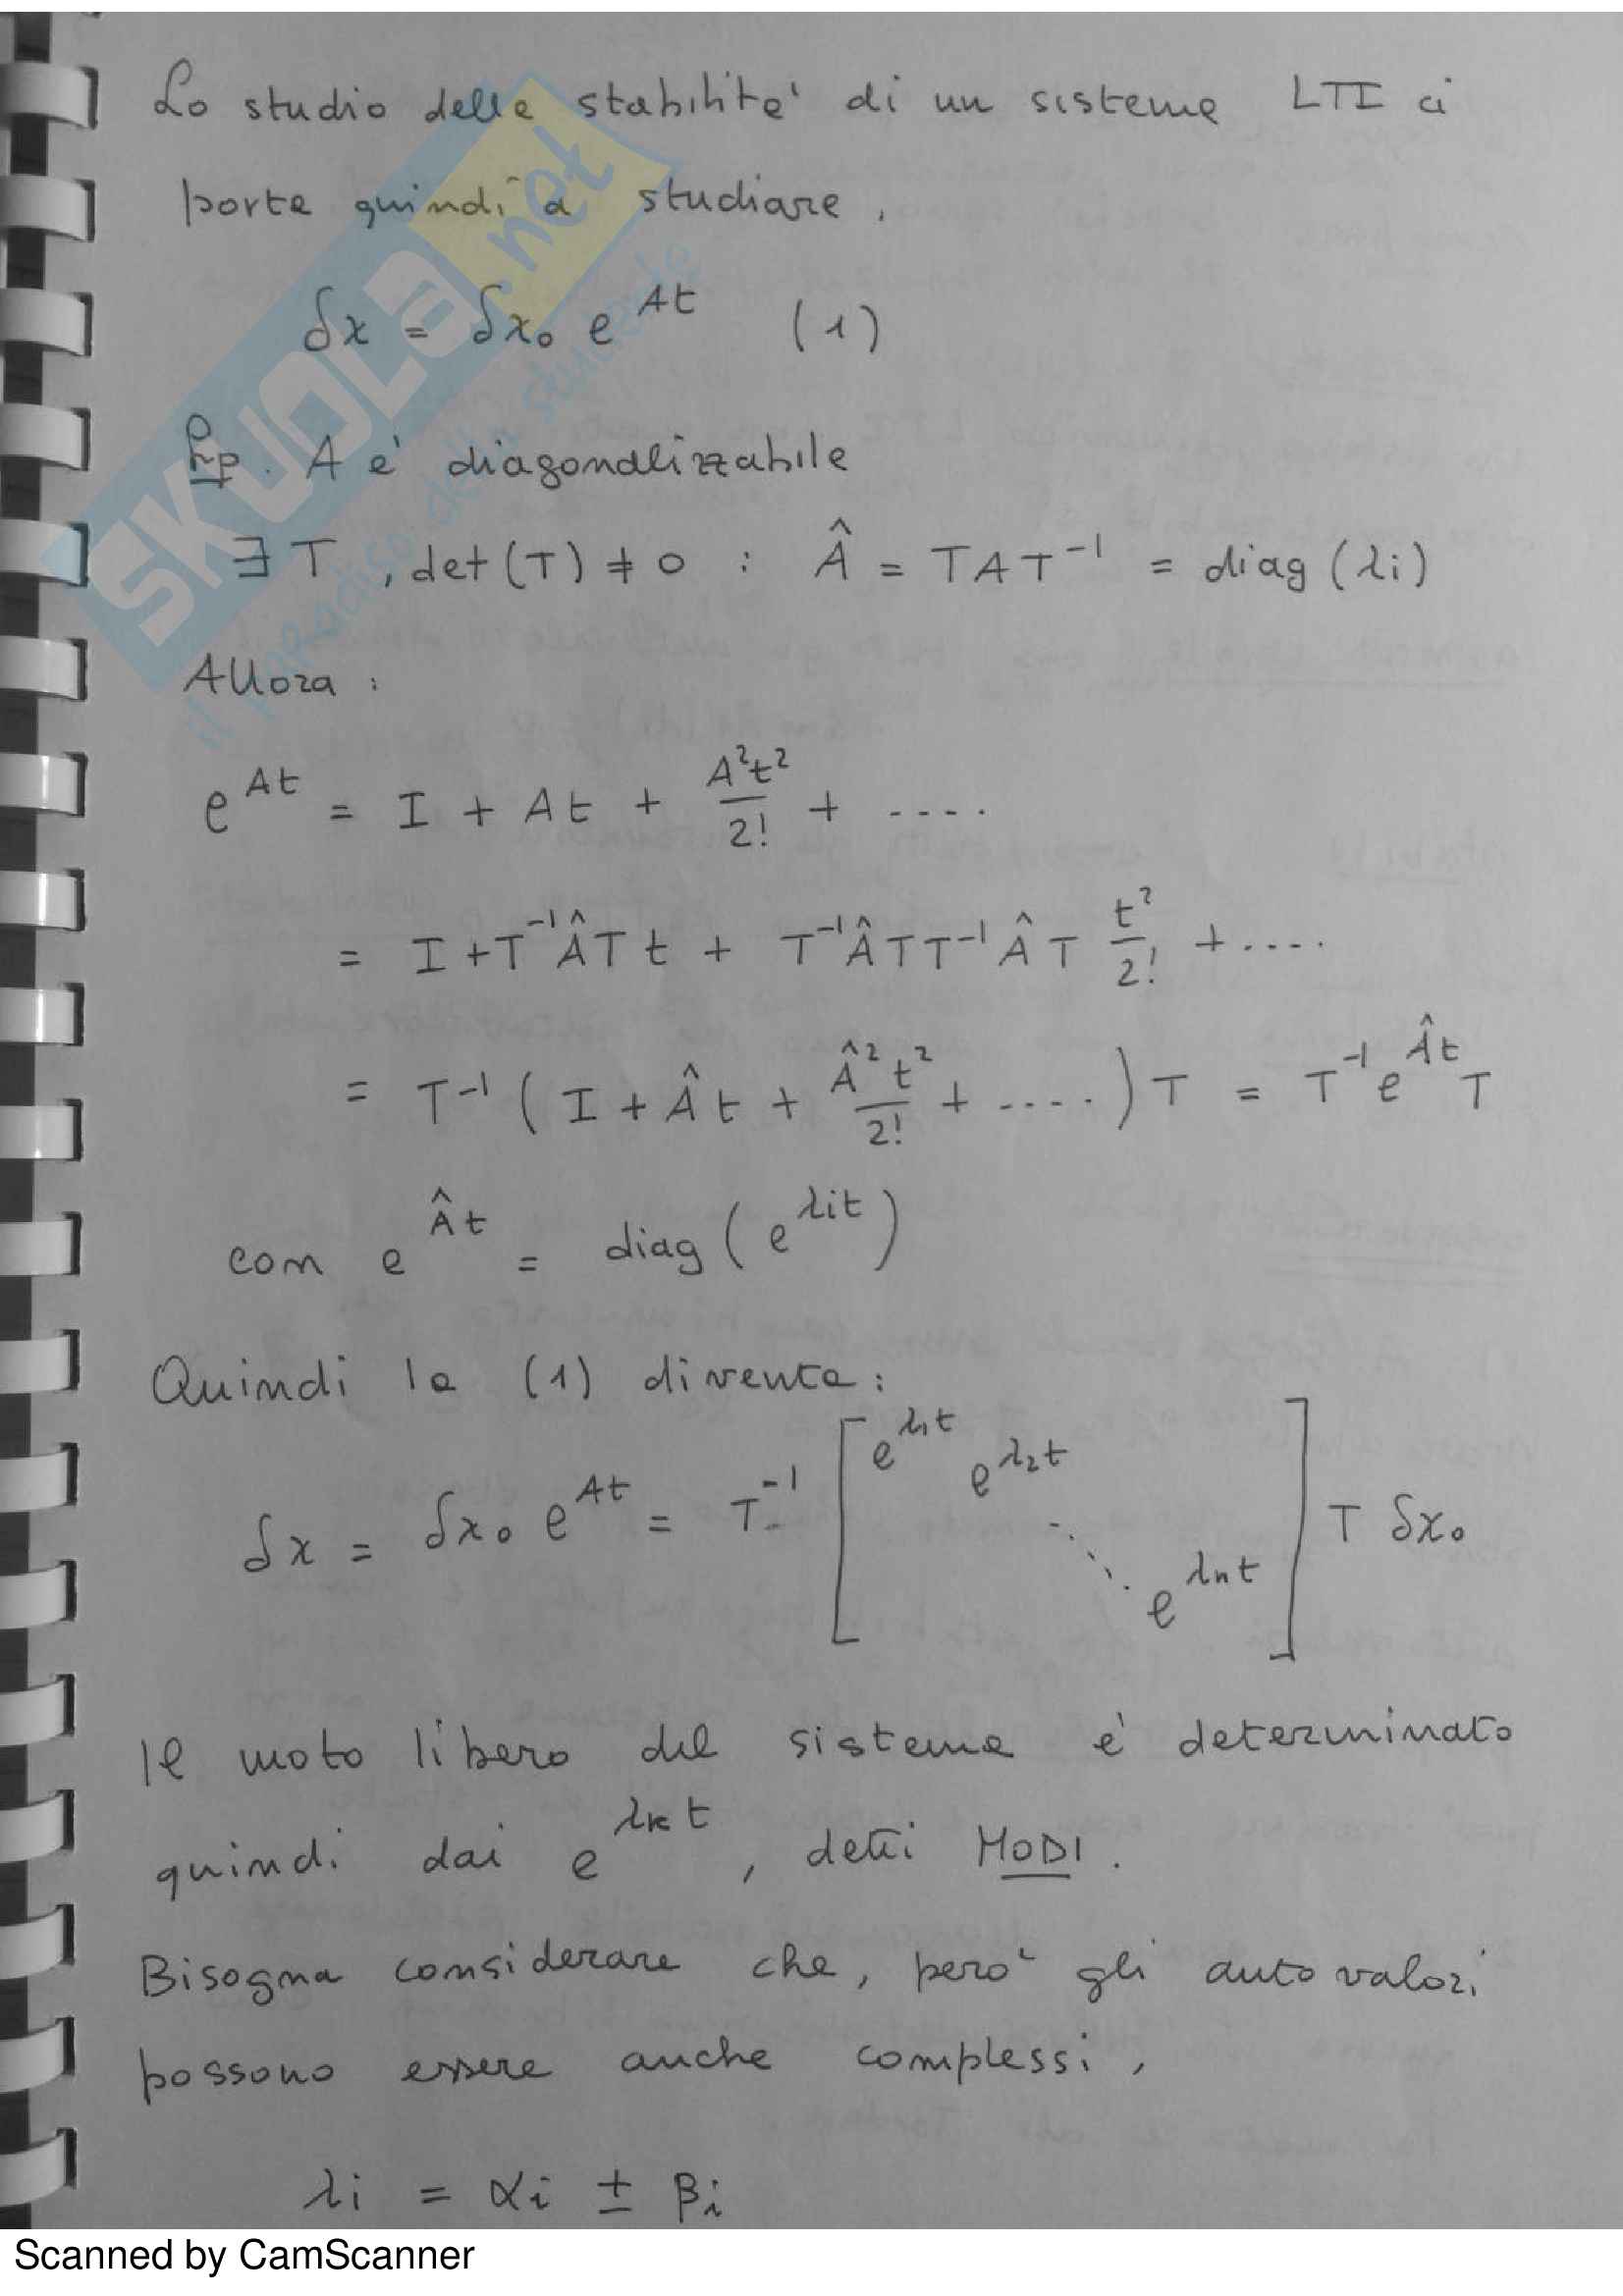 Lo studio della stabilita' di un sistema LTI ci
porta quindi a studiare,
δx = δx₀ e^{At} (1)
Hp. A è diagonalizzabile
∃ T , det(T) ≠ 0 : Â = TAT⁻¹ = diag(λi)
Allora :
e^{At} = I + At + A²t²/2! + ....
= I + T⁻¹ÂTt + T⁻¹ÂTT⁻¹ÂT t²/2! + ....
= T⁻¹( I + Ât + Â²t²/2! + .... )T = T⁻¹e^{Ât}T
con e^{Ât} = diag(e^{λit})
Quindi la (1) diventa :
δx = δx₀ e^{At} = T⁻¹ [ e^{λ1t} e^{λ2t} ⋱ e^{λnt} ] T δx₀
Il moto libero del sistema è determinato
quindi dai e^{λkt} , detti MODI.
Bisogna considerare che, però gli autovalori
possono essere anche complessi,
λi = αi ± βi
SKUOLA.net
il paradiso dello studente
Scanned by CamScanner